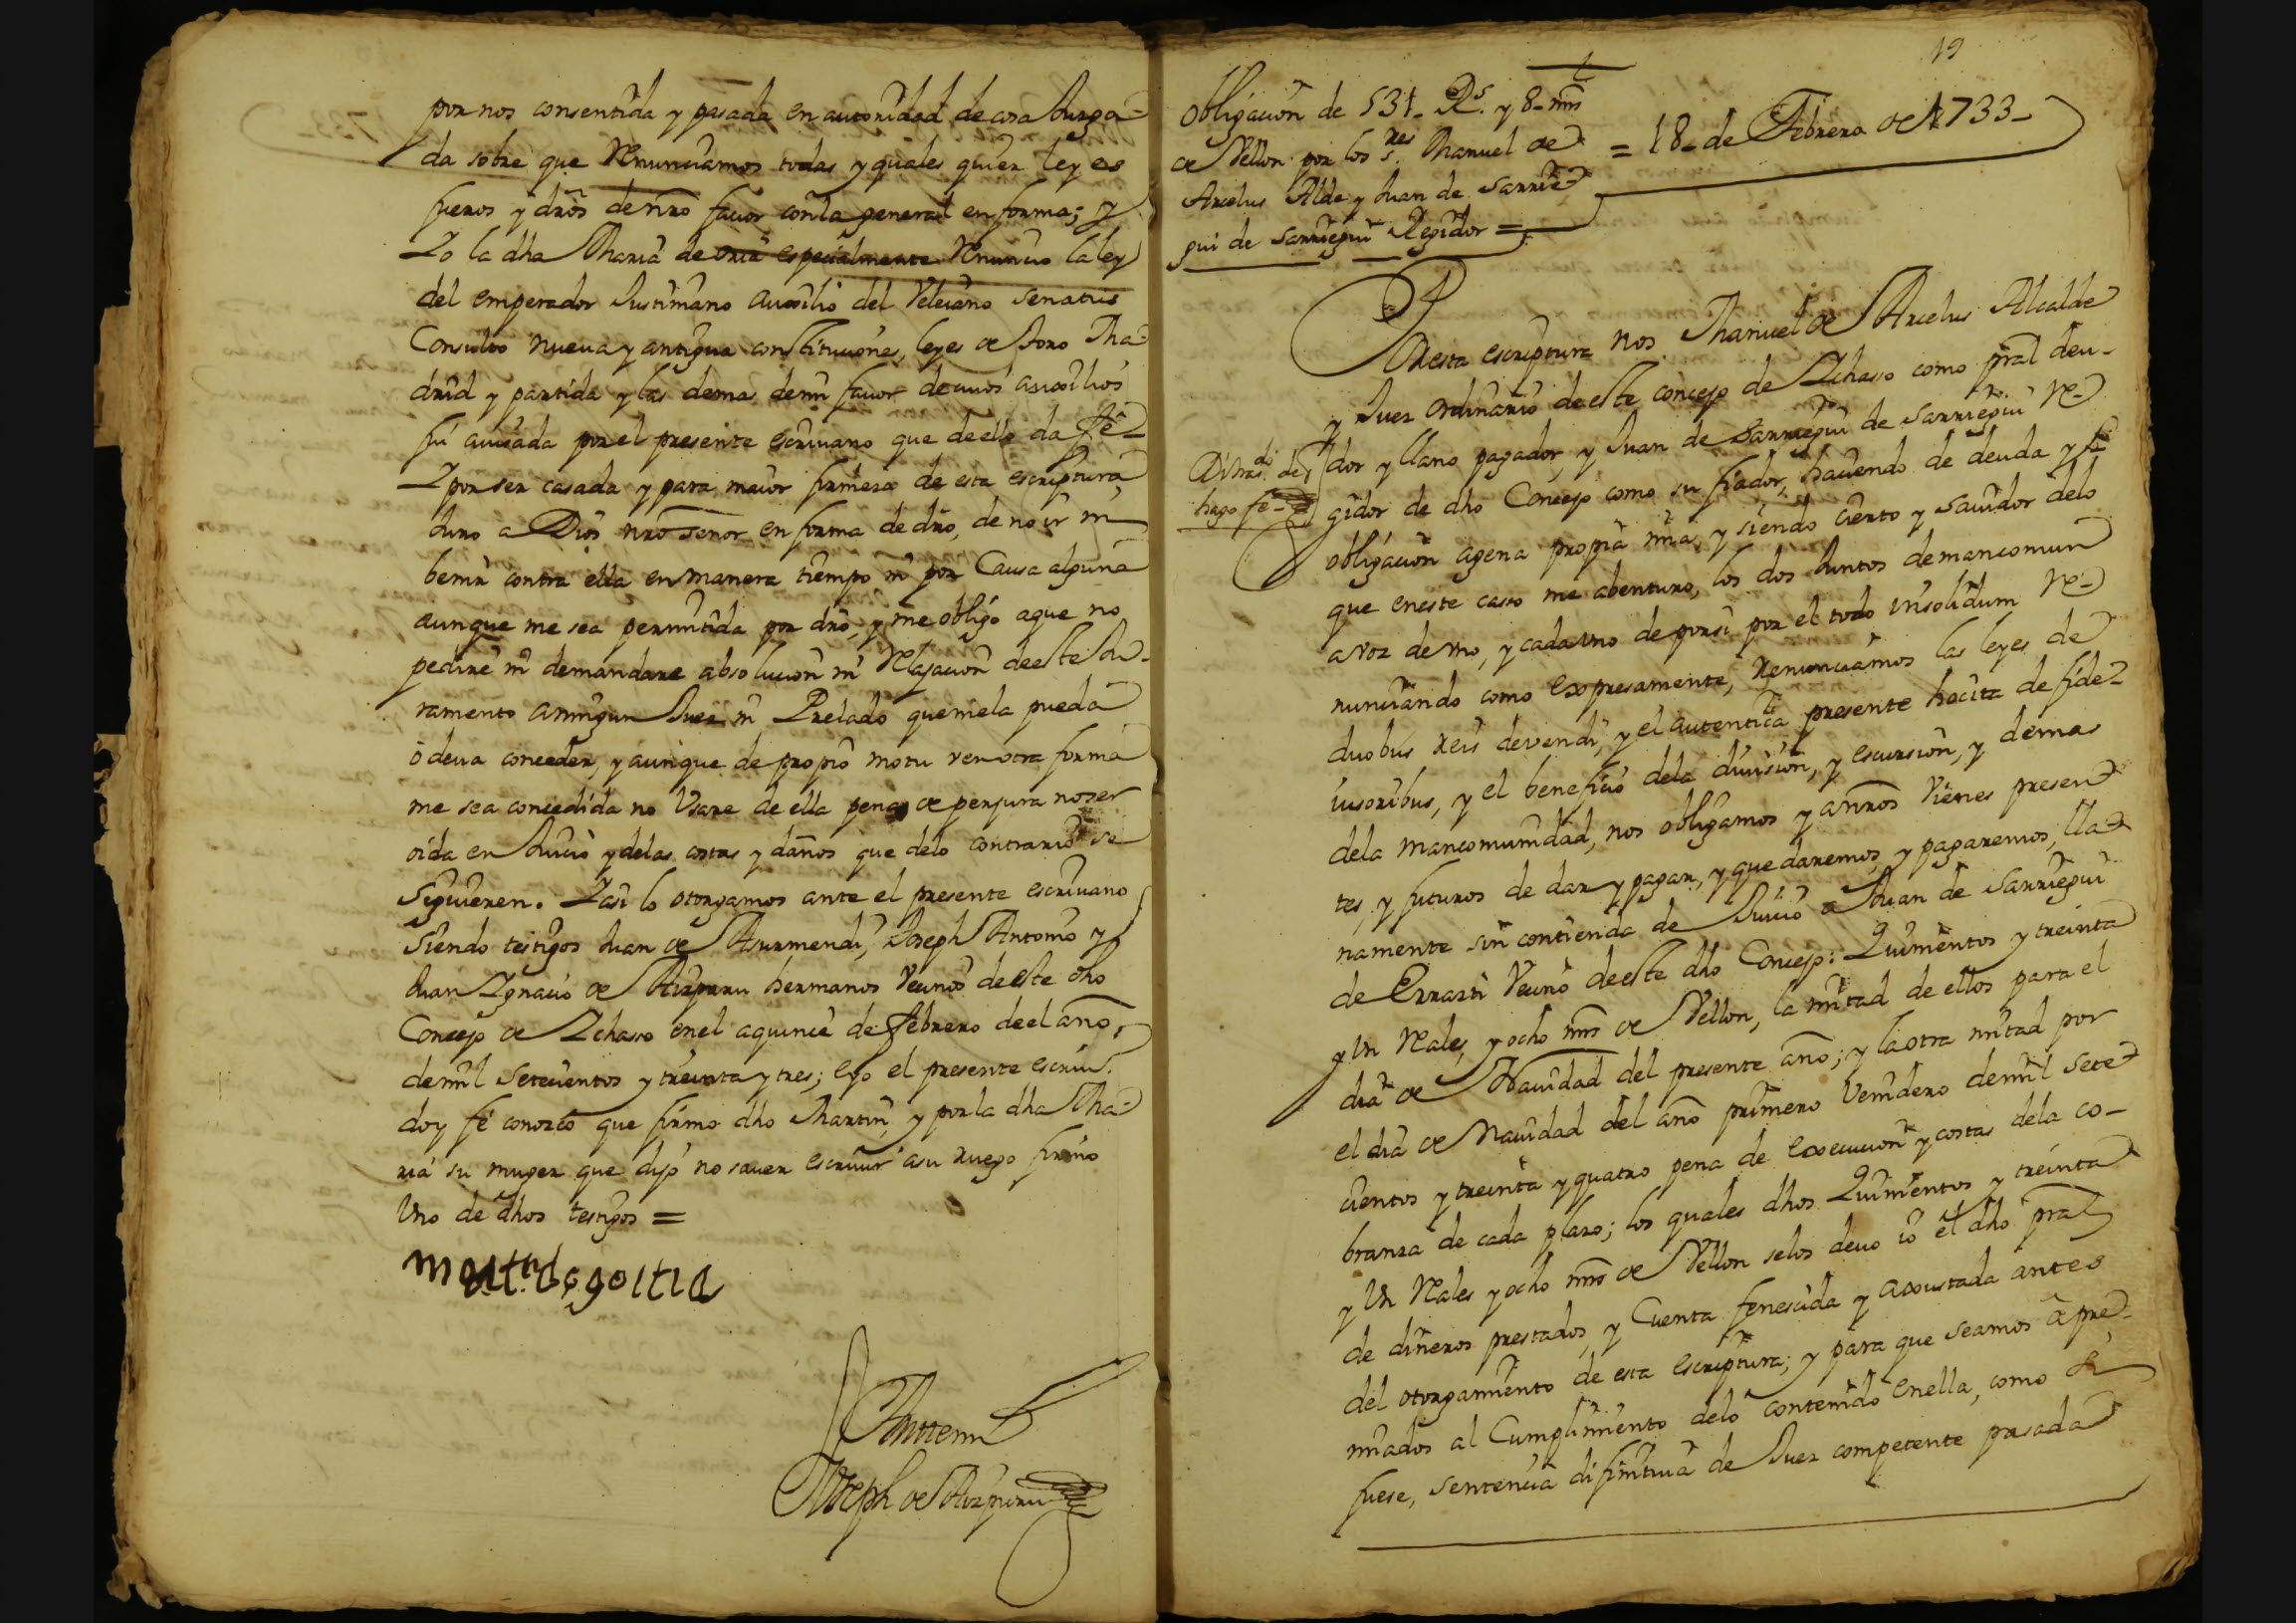 por nos consentida y pasada en autoridad de cosa Juzga-
da sobre que Renunciamos todas y quales quier leyes
fueros y dros de nro favor con la general en forma; y
Yo la dha Maria de oria especialmente Renuncio la ley
del emperador Justiniano auxilio del Veleiano Senatus
Consulto nueva y antigua constituciones, leyes de toro Ma-
drid y partida y las demas de mi favor de cuios auxilios
fui avisada por el presente escrivano que de ello da fe-
Y por ser casada y para maior firmeza de esta escriptura
Juro a Dios nro señor en forma de dro, de no ir ni
benir contra ella en manera tiempo ni por Causa alguna
aunque me sea permitida por dro, y me obligo a que no
pedire ni demandare absolucion ni Relajacion de este Ju-
ramento a ningun Juez ni Prelado que me la pueda
o deva conceder, y aunque de propio motu u en otra forma
me sea concedida no Usare de ella pena de perjura no ser
oida en Juicio y de las costas y daños que de lo contrario se
Siguieren. Y asi lo otorgamos ante el presente escrivano
Siendo testigos Juan de Asurmendi, Joseph Antonio y
Juan Ygnacio de Aizpuru hermanos Vecinos de este dho
Concejo de Ychaso en el a quince de febrero de el año
de mil Setecientos y treinta y tres; e yo el presente escriv.
doy fe conozco que firmo dho Martin, y por la dha Ma-
ria su muger que dijo no saver escrivir a su ruego firmo
Uno de dhos testigos =
martn de goitia
Antemi
Joseph de Aizpuru
19
Obligacion de 531 Rs. y 8 mrs
de Vellon por los sres. Manuel de
Arcelus Alde y Juan de Sarrie-
gui de Sarriegui Regidor =
= 18 de Febrero de 1733
Por esta escriptura nos Manuel de Arcelus Alcalde
y Juez ordinario de este concejo de Ychaso como pral deu-
dor y llano pagador, y Juan de Sarriegui de Sarriegui Re-
gidor de dho Concejo como su fiador, haciendo de deuda y
hago fe
obligacion agena propia mia, y siendo cierto y savidor de lo
que en este caso me abenturo, los dos Juntos de mancomun
a voz de uno, y cada uno de por si por el todo insolidum Re-
nunciando como expresamente, renunciamos las leyes de
duobus reis devendi, y el autentica presente hocita de fide-
iusoribus, y el beneficio de la division, y escursion, y demas
de la mancomunidad, nos obligamos y a nros Vienes presen-
tes, y futuros de dar y pagar, y que daremos, y pagaremos, lla-
namente sin contienda de Juicio a Juan de Sarriegui
de Errazti Vecino de este dho Concejo: Quinientos y treinta
y Un Reales, y ocho mrs de Vellon, la mitad de ellos para el
dia de Navidad del presente año; y la otra mitad por
el dia de Navidad del año primero Venidero de mil Sete-
cientos y treinta y quatro pena de execucion y costas de la co-
branza de cada plazo; los quales dhos Quinientos y treinta
y Un Reales y ocho mrs de Vellon se los devo io el dho pral
de dineros prestados, y Cuenta fenescida y axustada antes
del otorgamiento de esta escriptura; y para que seamos apre-
miados al Cumplimiento de lo contenido en ella, como si
fuese, Sentencia difinitiva de Juez competente pasada